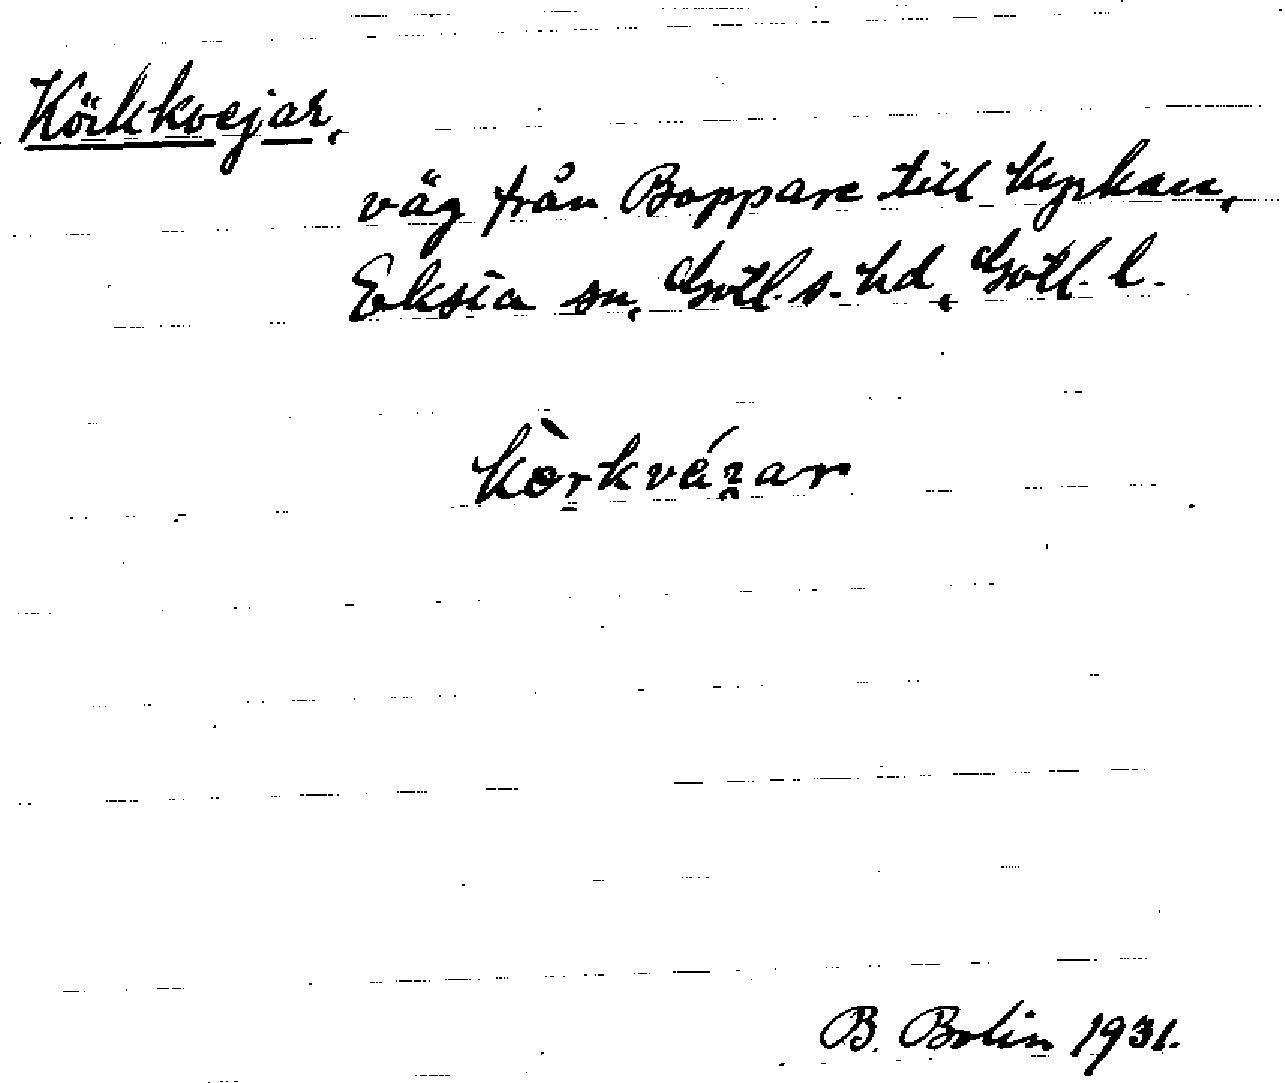 Körkkvejar,
väg från Boppare till kyrkan,
Eksta sn, Gotl. s. hd, Gotl. l.
B. Bolin 1931.